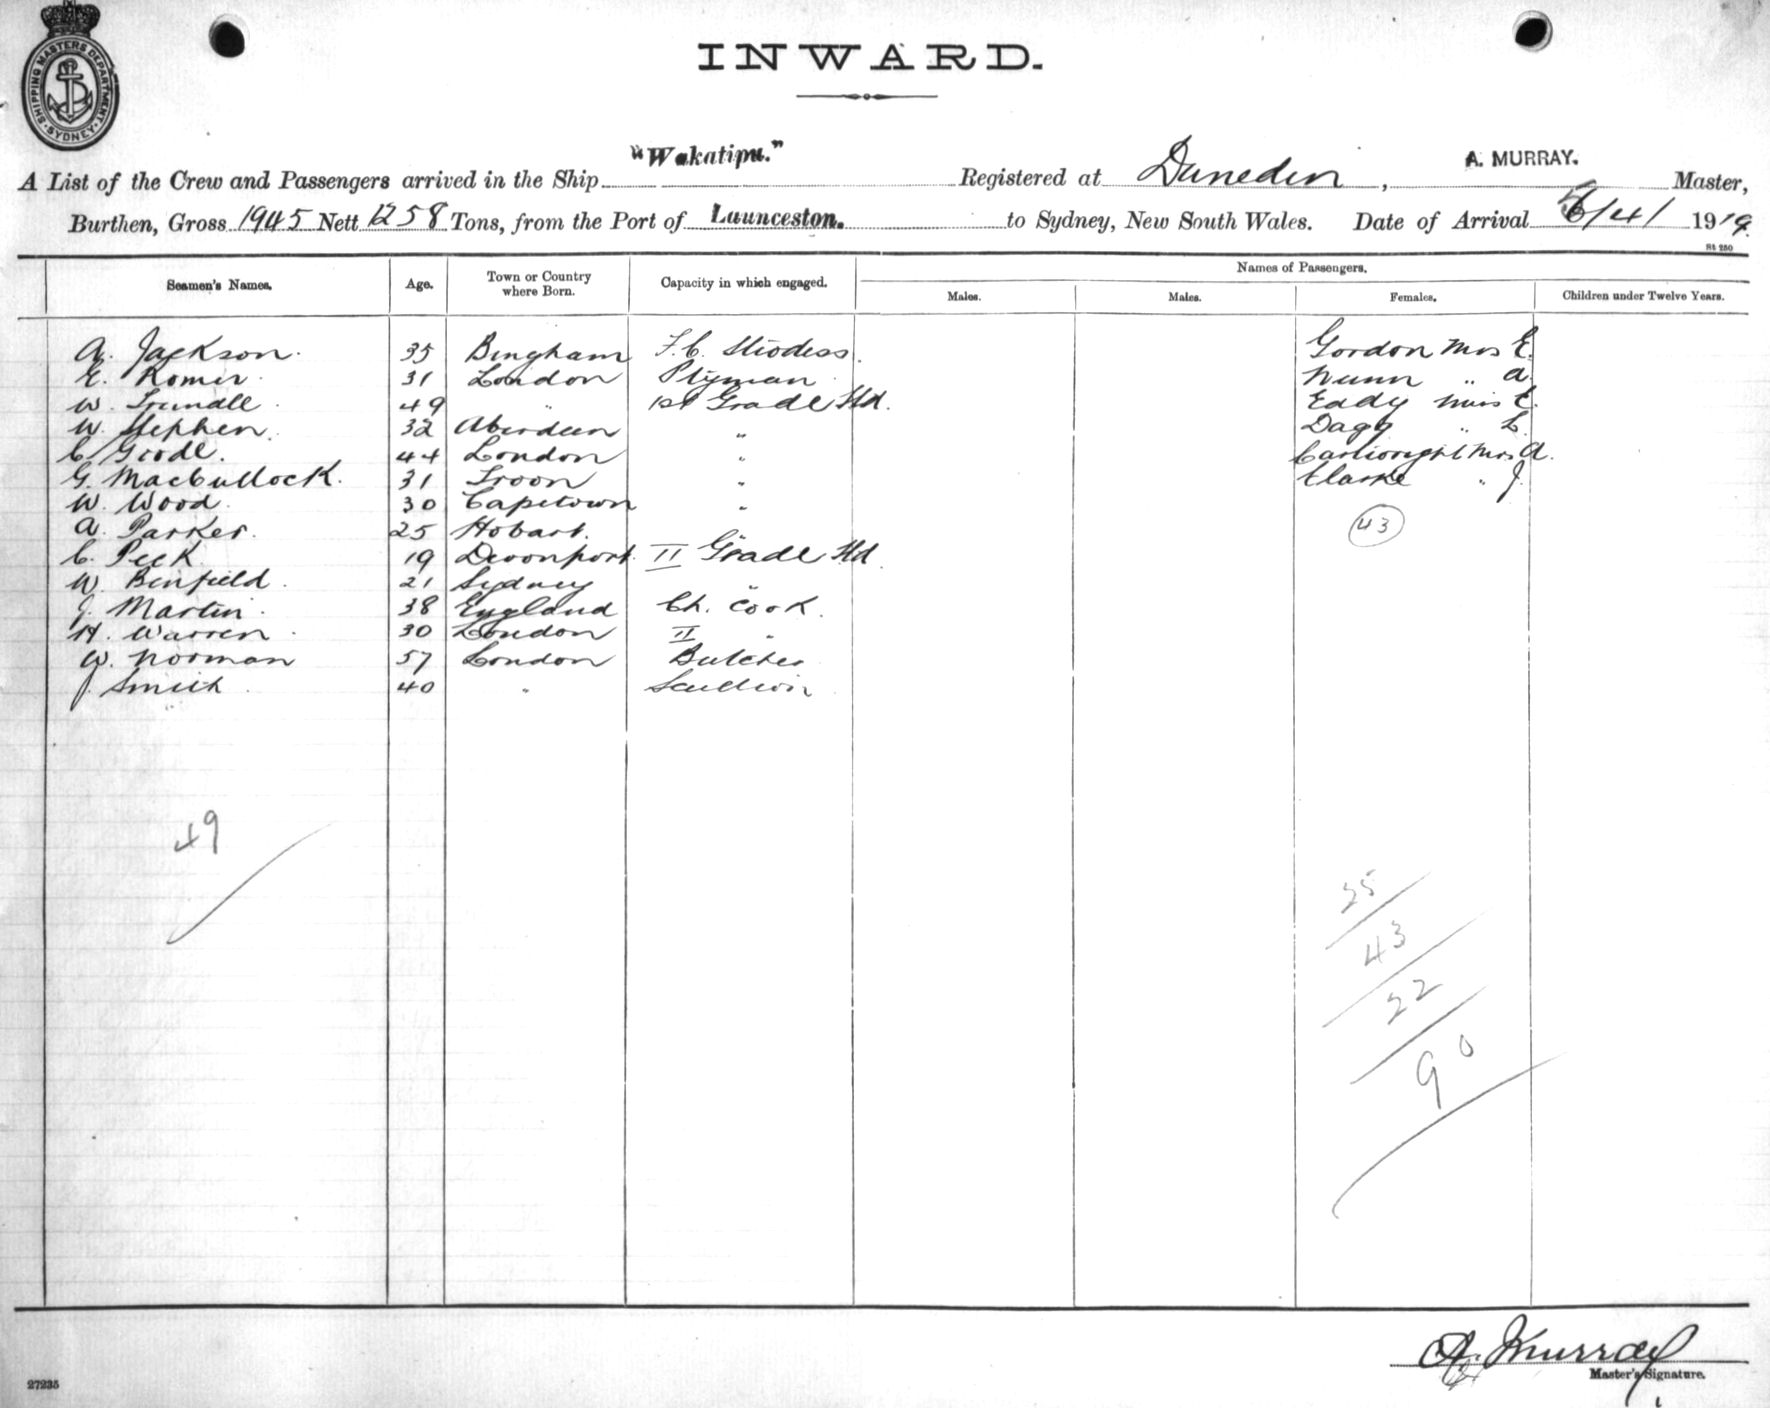 SHIPPING MASTERS DEPARTMENT
SYDNEY
INWARD.
A List of the Crew and Passengers arrived in the Ship "Wakatipu." Registered at Dunedin, A. MURRAY. Master,
Burthen, Gross 1945 Nett 1258 Tons, from the Port of Launceston. to Sydney, New South Wales. Date of Arrival /4/ 1919.
Seamen's Names. Age. Town or Country where Born. Capacity in which engaged. Names of Passengers.
Males. Males. Females. Children under Twelve Years.
A. Jackson. 35 Bingham F.C. Stwdess. Gordon Mrs E.
E. Romer. 31 London Ptyman Nunn " A.
W. Trundle. 49 " 1st Grade Std. Eddy Miss E.
W. Stephen. 32 Aberdeen " Dagg " L.
C. Goode. 44 London " Cartwright Mrs A.
G. MacCullock. 31 Troon " Clarke " J.
W. Wood. 30 Capetown "
A. Parker. 25 Hobart. " 43
C. Peck 19 Devonport. II Grade Std
W. Binfield. 21 Sydney "
J. Martin. 38 England Ch. Cook.
H. Warren. 30 London II "
W. Norman 57 London Butcher
J. Smith. 40 "
49
25
43
22
90
A. Murray
Master's Signature.
27235